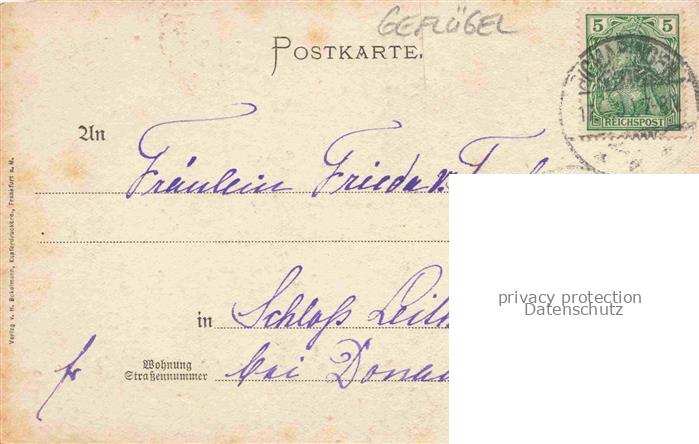 GEFLÜGEL
POSTKARTE.
5 5
REICHSPOST
An
Fräulein Frieda v.
in Schloß
fr Wohnung
Straßennummer bei
Verlag v. H. Bokelmann, Kupferdruckkre., Frankfurt a. M.
privacy protection
Datenschutz